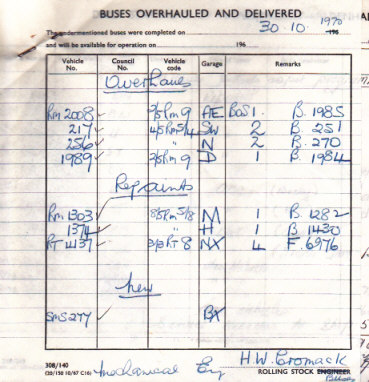 BUSES OVERHAULED AND DELIVERED
The undermentioned buses were completed on 30.10 1970 196
and will be available for operation on 196
Vehicle No. Council No. Vehicle code Garage Remarks
Overhauls
Rm 2008 ✓ 2/5 Rm 9 AE BOS 1. B. 1985
217 ✓ 4/5 Rm 5/4 SW 2 B. 251
256 ✓ " N 2 B. 270
1989 ✓ 2/5 Rm 9 D 1 B. 1984
Repaints
Rm 1303 ✓ 8/5 Rm 5/8 M 1 B. 1282
1374 " H 1 B. 1430
RT 4137 ✓ 3/3 RT 8 NX 4 F. 6976
New
SMS 277 ✓ BX
308/140
(20/150 10/67 C16) Mechanical Eng H.W. Cromack
ROLLING STOCK ENGINEER